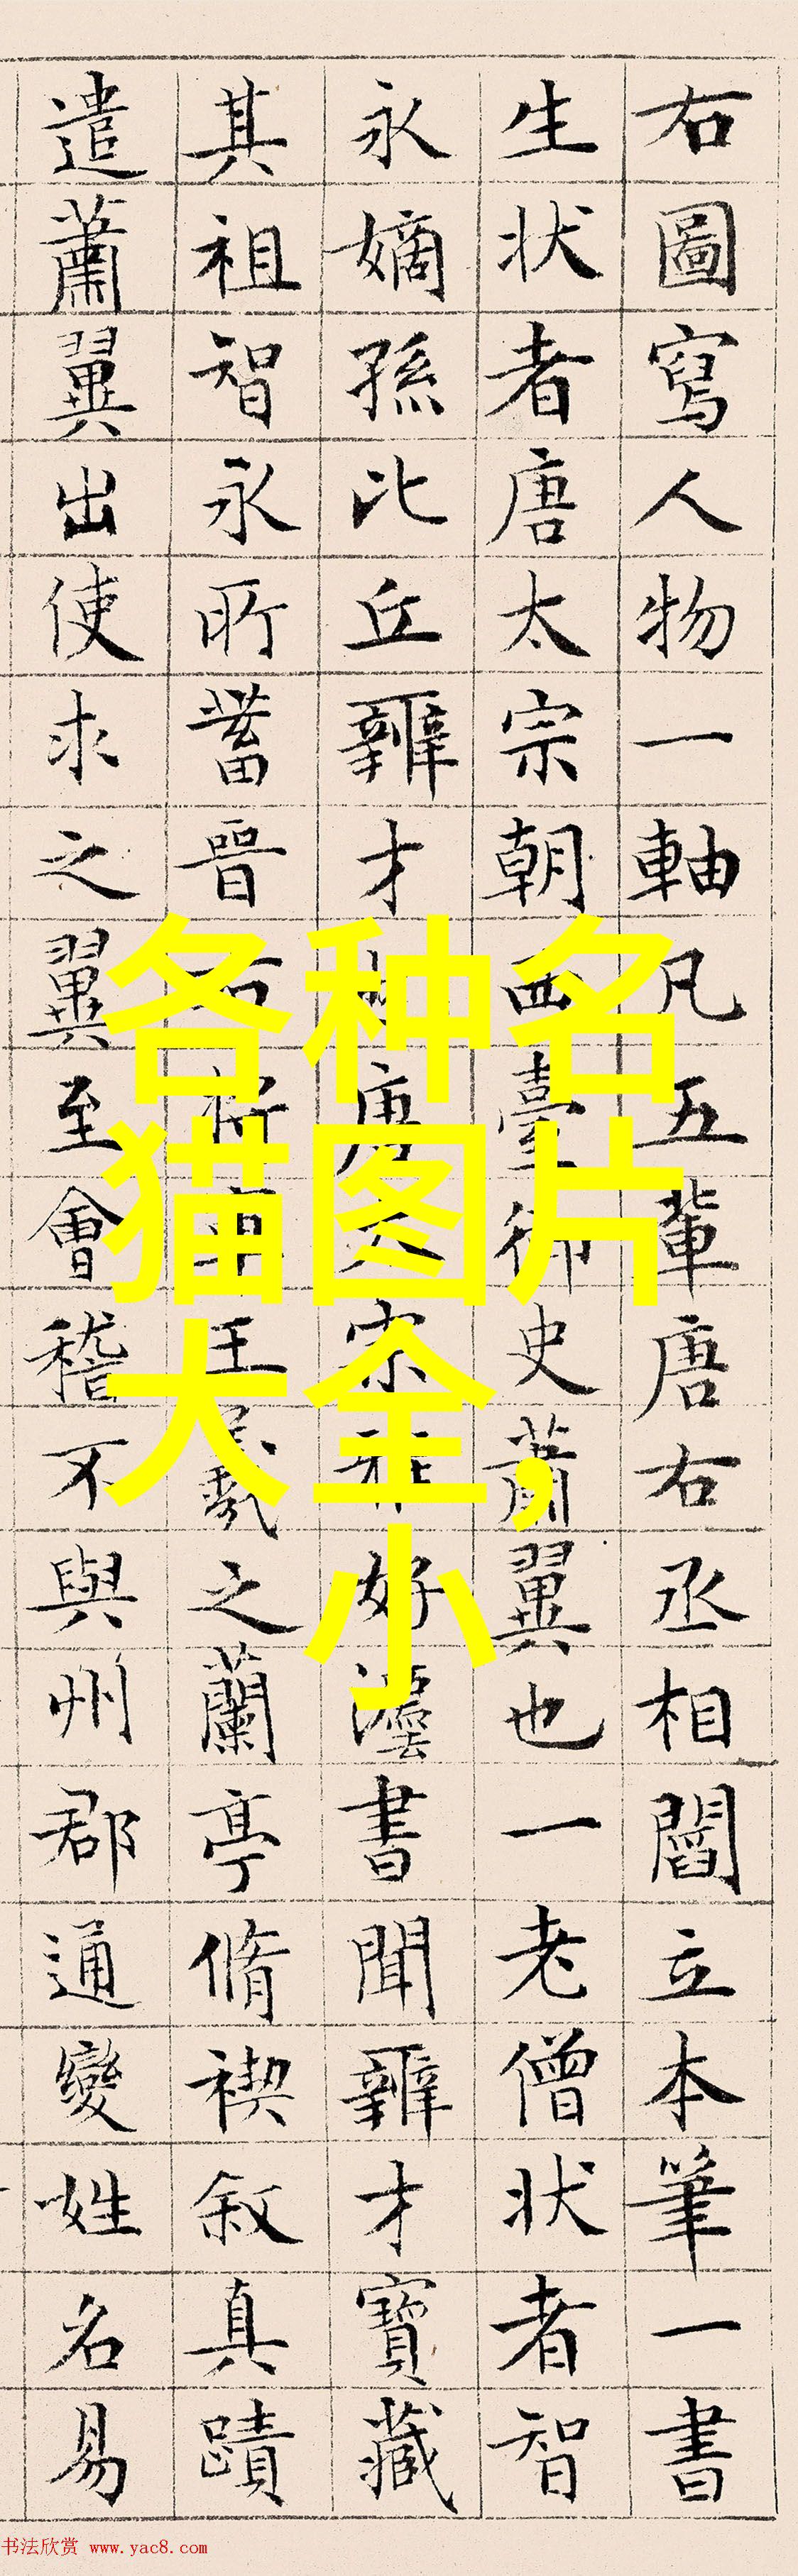 右圖寫人物一軸凡五輩唐右丞相閻立本筆一書
生状者唐太宗朝西臺御史蕭翼也一老僧状者智
永嫡孫比丘辯才也唐太宗雅好灋書聞辯才寶藏
其祖智永所蓄晉右將軍王羲之蘭亭脩禊叙真蹟
遣蕭翼出使求之翼至會稽不與州郡通變姓名易
各种名
猫图片
大全,
小
书法欣赏 www.yac8.com